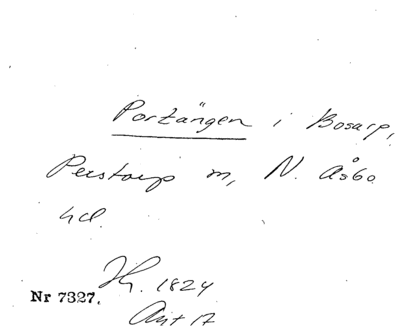 Portängen i Bosarp,
Perstorp m, N. Åsbo
hd.
Hr. 1824
Nr 7327.
Akt 17